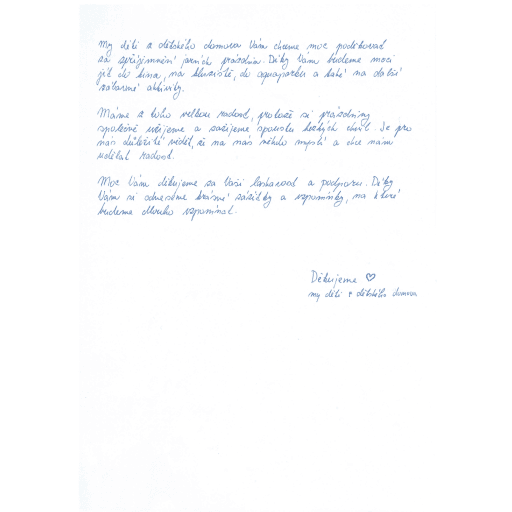 My děti z dětského domova Vám chceme moc poděkovat
za zpříjemnění jarních prázdnin. Díky Vám budeme moci
jít do kina, na kluziště, do aquaparku a také na další
zábavné aktivity.
Máme z toho velkou radost, protože si prázdniny
společně užijeme a zažijeme spoustu hezkých chvil. Je pro
nás důležité vědět, že na nás někdo myslí a chce nám
udělat radost.
Moc Vám děkujeme za Vaši laskavost a podporu. Díky
Vám si odneseme krásné zážitky a vzpomínky, na které
budeme dlouho vzpomínat.
Děkujeme ♡
my děti z dětského domova